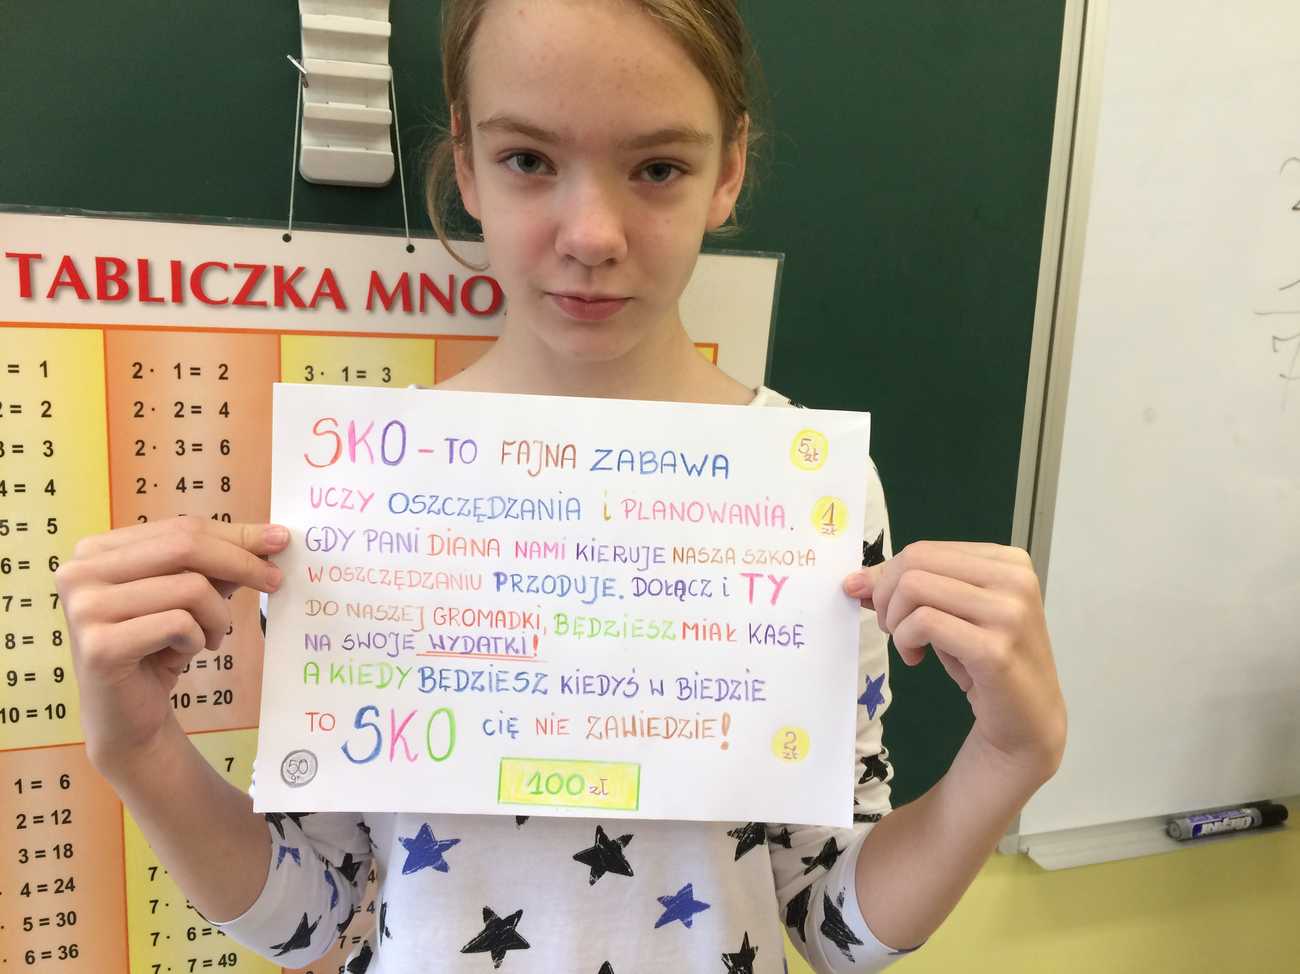 TABLICZKA MNO
= 1
2 · 1 = 2
3 · 1 = 3
2 = 2
2 · 2 = 4
3 = 3
2 · 3 = 6
4 = 4
2 · 4 = 8
5 = 5
6 = 6
7 = 7
8 = 8
9 = 9
= 18
10 = 10
10 = 20
SKO - TO FAJNA ZABAWA
5 zł
UCZY OSZCZĘDZANIA i PLANOWANIA.
1 zł
GDY PANI DIANA NAMI KIERUJE NASZA SZKOŁA
W OSZCZĘDZANIU PRZODUJE. DOŁĄCZ i TY
DO NASZEJ GROMADKI, BĘDZIESZ MIAŁ KASĘ
NA SWOJE WYDATKI!
A KIEDY BĘDZIESZ KIEDYŚ W BIEDZIE
TO SKO CIĘ NIE ZAWIEDZIE!
2 zł
50 gr.
100 zł
1 = 6
2 = 12
3 = 18
4 = 24
5 = 30
6 = 36
7
7 ·
7 ·
7 · 6 = 4
7 · 7 = 49